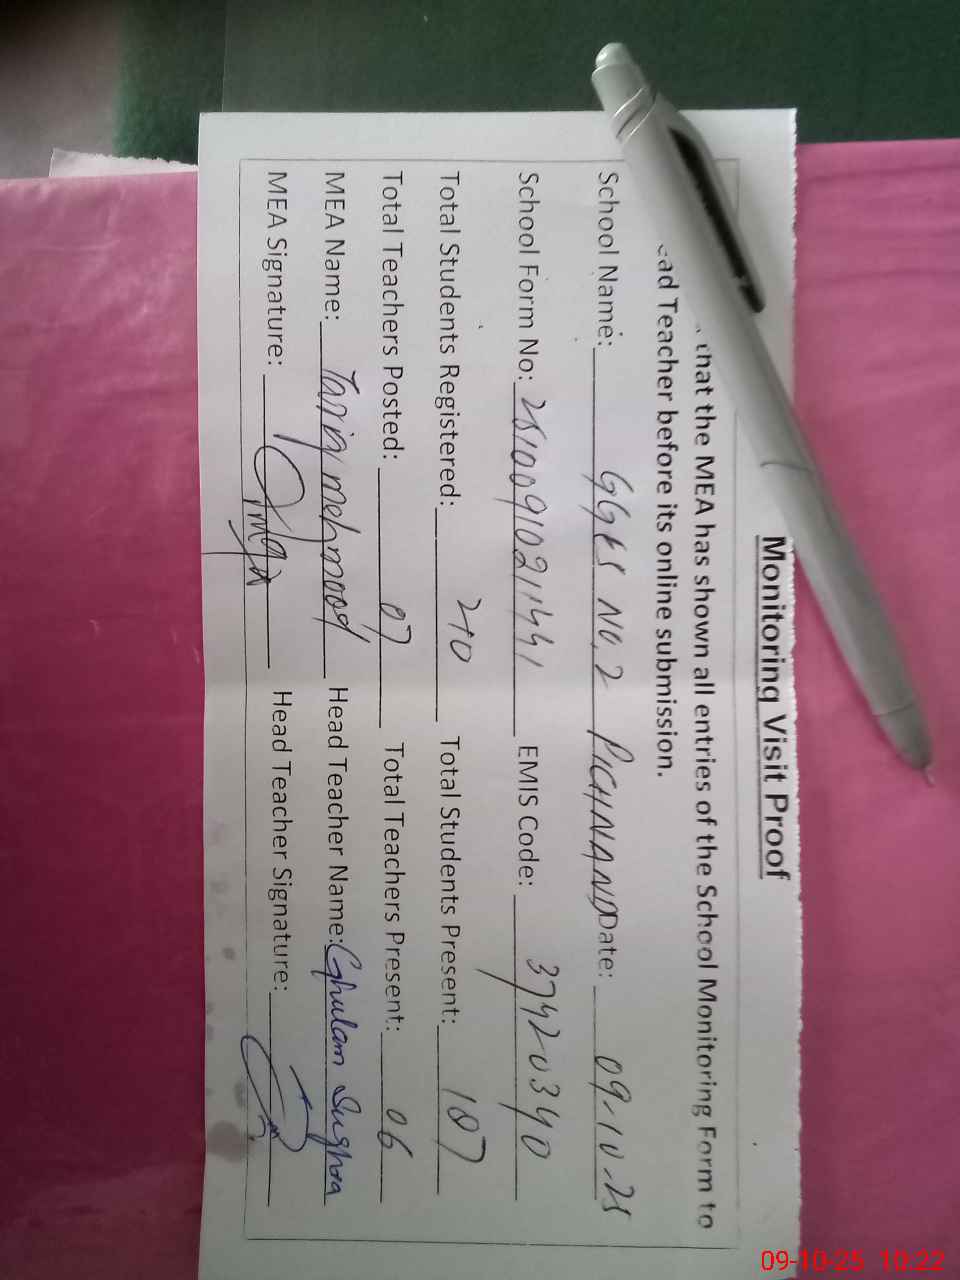 Monitoring Visit Proof
that the MEA has shown all entries of the School Monitoring Form to
Teacher before its online submission.
School Name: GGES NO.2 PICHNAND Date: 09-10-25
School Form No: EMIS Code: 37420340
Total Students Registered: 210 Total Students Present: 187
Total Teachers Posted: 07 Total Teachers Present: 06
MEA Name: Tariq mehmood Head Teacher Name: Ghulam Sughra
MEA Signature: Head Teacher Signature:
09-10-25 10:22